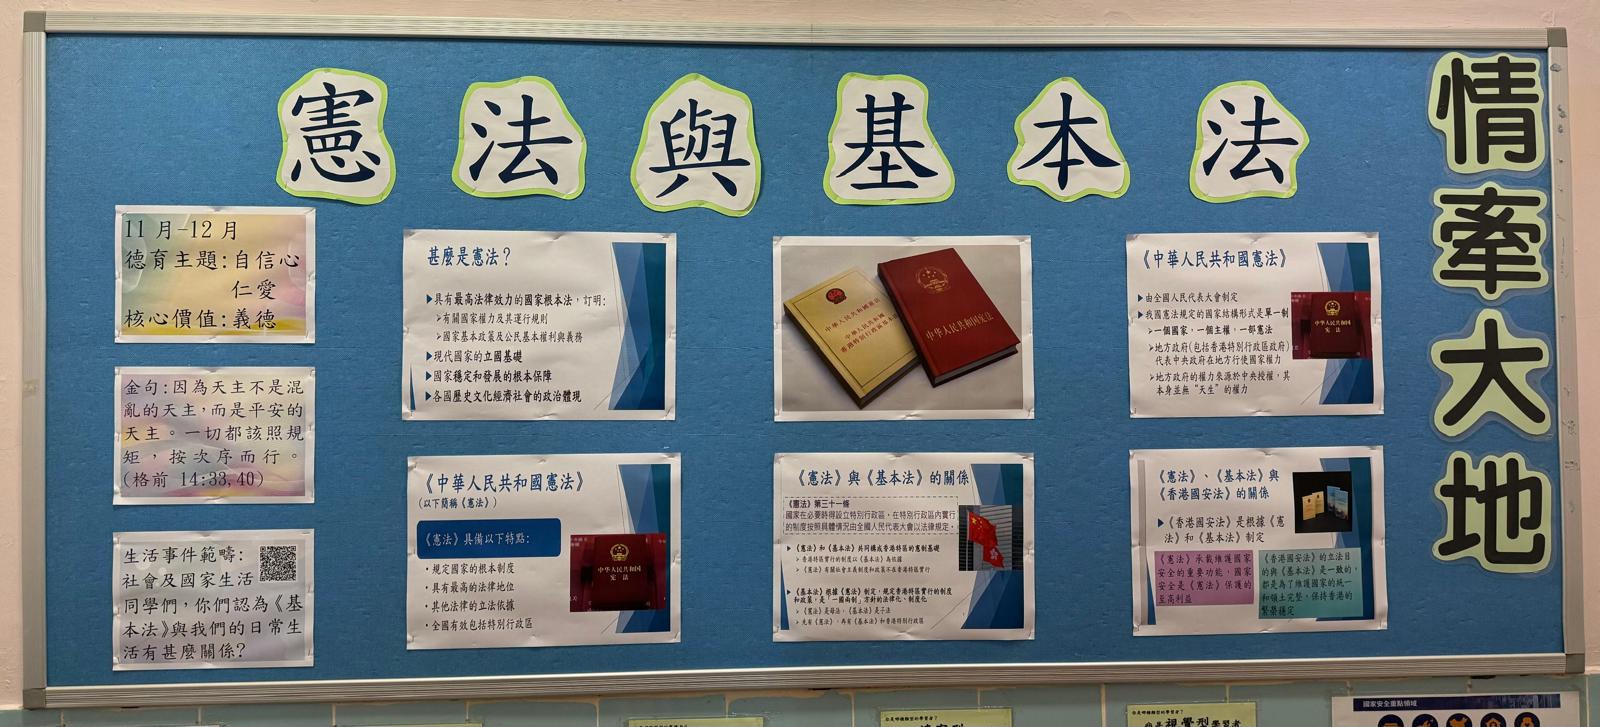 憲法與基本法
情牽大地
11月-12月
德育主題:自信心
仁愛
核心價值:義德
金句:因為天主不是混
亂的天主,而是平安的
天主。一切都該照規
矩,按次序而行。
(格前 14:33,40)
生活事件範疇:
社會及國家生活
同學們,你們認為《基
本法》與我們的日常生
活有甚麼關係?
甚麼是憲法?
具有最高法律效力的國家根本法,訂明:
有關國家權力及其運行規則
國家基本政策及公民基本權利與義務
現代國家的立國基礎
國家穩定和發展的根本保障
各國歷史文化經濟社會的政治體現
中華人民共和國憲法
中華人民共和國
香港特別行政區基本法
中华人民共和国宪法
《中華人民共和國憲法》
由全國人民代表大會制定
我國憲法規定的國家結構形式是單一制
一個國家,一個主權,一部憲法
地方政府(包括香港特別行政區政府)
代表中央政府在地方行使國家權力
地方政府的權力來源於中央授權,其
本身並無“天生”的權力
中华人民共和国
宪法
《中華人民共和國憲法》
(以下簡稱《憲法》)
《憲法》具備以下特點:
規定國家的根本制度
具有最高的法律地位
其他法律的立法依據
全國有效包括特別行政區
中华人民共和国
宪法
《憲法》與《基本法》的關係
《憲法》第三十一條
國家在必要時得設立特別行政區。在特別行政區內實行
的制度按照具體情況由全國人民代表大會以法律規定。
《憲法》和《基本法》共同構成香港特區的憲制基礎
香港特區實行的制度以《基本法》為依據
《憲法》有關社會主義制度和政策不在香港特區實行
《基本法》根據《憲法》制定,規定香港特區實行的制度
和政策,是「一國兩制」方針的法律化、制度化
《憲法》是母法,《基本法》是子法
先有《憲法》,再有《基本法》和香港特別行政區
《憲法》、《基本法》與
《香港國安法》的關係
《香港國安法》是根據《憲
法》和《基本法》制定
《憲法》承載維護國家
安全的重要功能,國家
安全是《憲法》保護的
至高利益
《香港國安法》的立法目
的與《基本法》是一致的,
都是為了維護國家的統一
和領土完整,保持香港的
繁榮穩定
你是哪種類型的學習者?
你是哪種類型的學習者?
視覺型學習者
國家安全重點領域